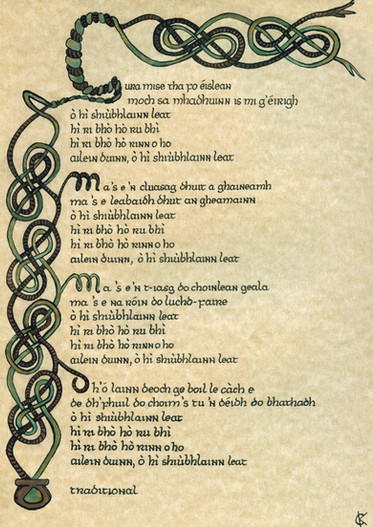 Gura mise tha fo éislean
moch sa mhadhuinn is mi g'éirigh
ò hì shiùbhlainn leat
hì ri bhò hò ru bhì
hì ri bhò hò rinn o ho
ailein duinn, ò hì shiùbhlainn leat
Ma's e'n cluasag dhuit a ghaineamh
ma's e leabaidh dhut an gheamainn
ò hì shiùbhlainn leat
hì ri bhò hò ru bhì
hì ri bhò hò rinn o ho
ailein duinn, ò hì shiùbhlainn leat
Ma's e'n t-iasg do choinlean geala
ma's e na róin do luchd-faire
ò hì shiùbhlainn leat
hì ri bhò hò ru bhì
hì ri bhò hò rinn o ho
ailein duinn, ò hì shiùbhlainn leat
Dh'ó lainn deoch ge boil le càch e
de dh'fhuil do choim's tu'n déidh do bhathadh
ò hì shiùbhlainn leat
hì ri bhò hò ru bhì
hì ri bhò hò rinn o ho
ailein duinn, ò hì shiùbhlainn leat
traditional